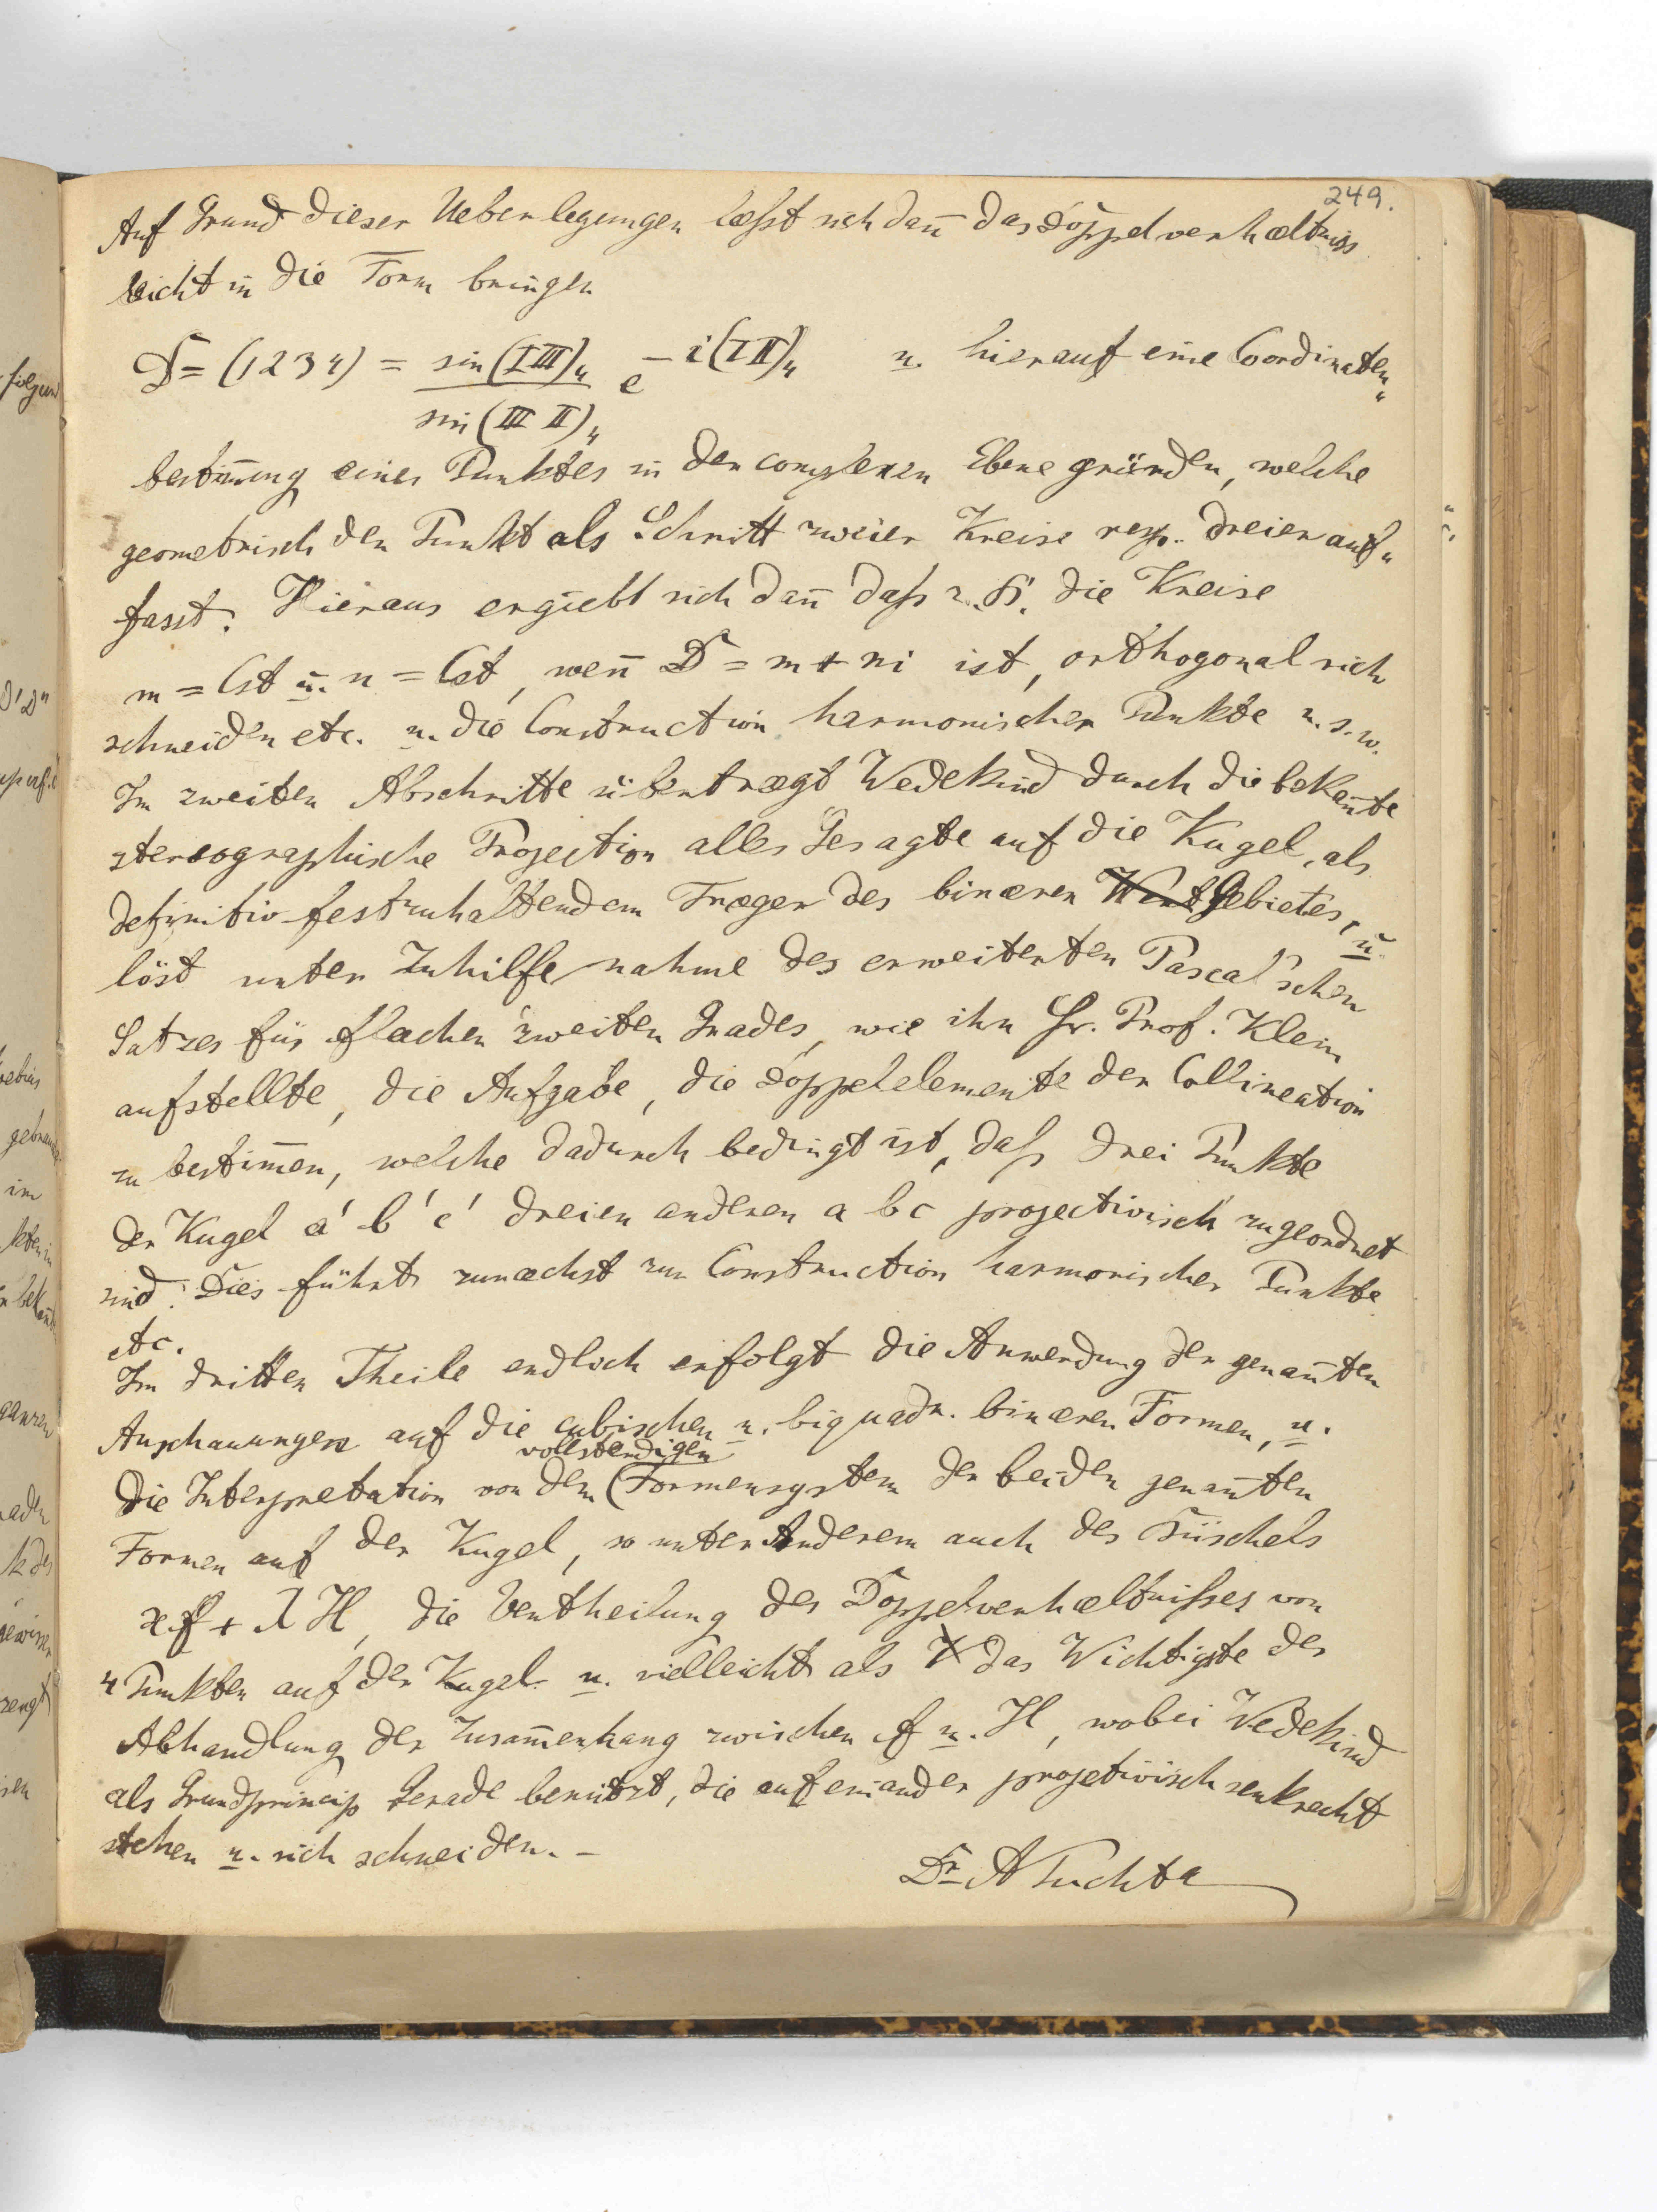 249.
Auf Grund dieser Ueberlegungen læsst sich dañ das Doppelverhæltniss
leicht in die Form bringen
D = (1234) = sin(I III)₄ / sin(III II)₄ e^{-i(I II)₄} u. hierauf eine Coordinaten„
bestim̄ung eines Punktes in der complexen Ebene gründen, welche
geometrisch den Punkt als Schnitt zweier Kreise resp. dreier auf„
fasst. Hieraus ergiebt sich dañ daſs z. B. die Kreise
m = Cst u. n = Cst, weñ D = m + ni ist, orthogonal sich
schneiden etc. u. die Construction harmonischer Punkte u. s. w.
Im zweiten Abschnitte übertrægt Wedekind durch die bekañte
stereographische Projection alles Gesagte auf die Kugel, als
definitiv festzuhaltendem Træger des binæren Gebietes, u.
löst unter Zuhilfenahme des erweiterten Pascal'schen
Satzes für flæchen zweiten Grades, wie ihn Hr. Prof. Klein
aufstellte, die Aufgabe, die Doppelelemente der Collineation
zu bestim̄en, welche dadurch bedingt ist, daſs drei Punkte
der Kugel a' b' c' dreien anderen a b c projectivisch zugeordnet
sind. Dies führt zunæchst zur Construction harmonischer Punkte
etc.
Im dritten Theile endlich erfolgt die Anwendung der genañten
Anschauungen auf die cubischen u. biquadr. binæren Formen, u.
vollstændigen
die Interpretation von dem (Formensystem der beiden genañten
Formen auf der Kugel, so unter Anderem auch des Büschels
ϰf + λH, die Vertheilung des Doppelverhæltniſses von
4 Punkten auf der Kugel u. vielleicht als das Wichtigste der
Abhandlung der Zusam̄enhang zwischen f u. H, wobei Wedekind
als Grundprincip Gerade benützt, die aufeinander projetivisch senkrecht
stehen u. sich schneiden. –
Dr A Puchta